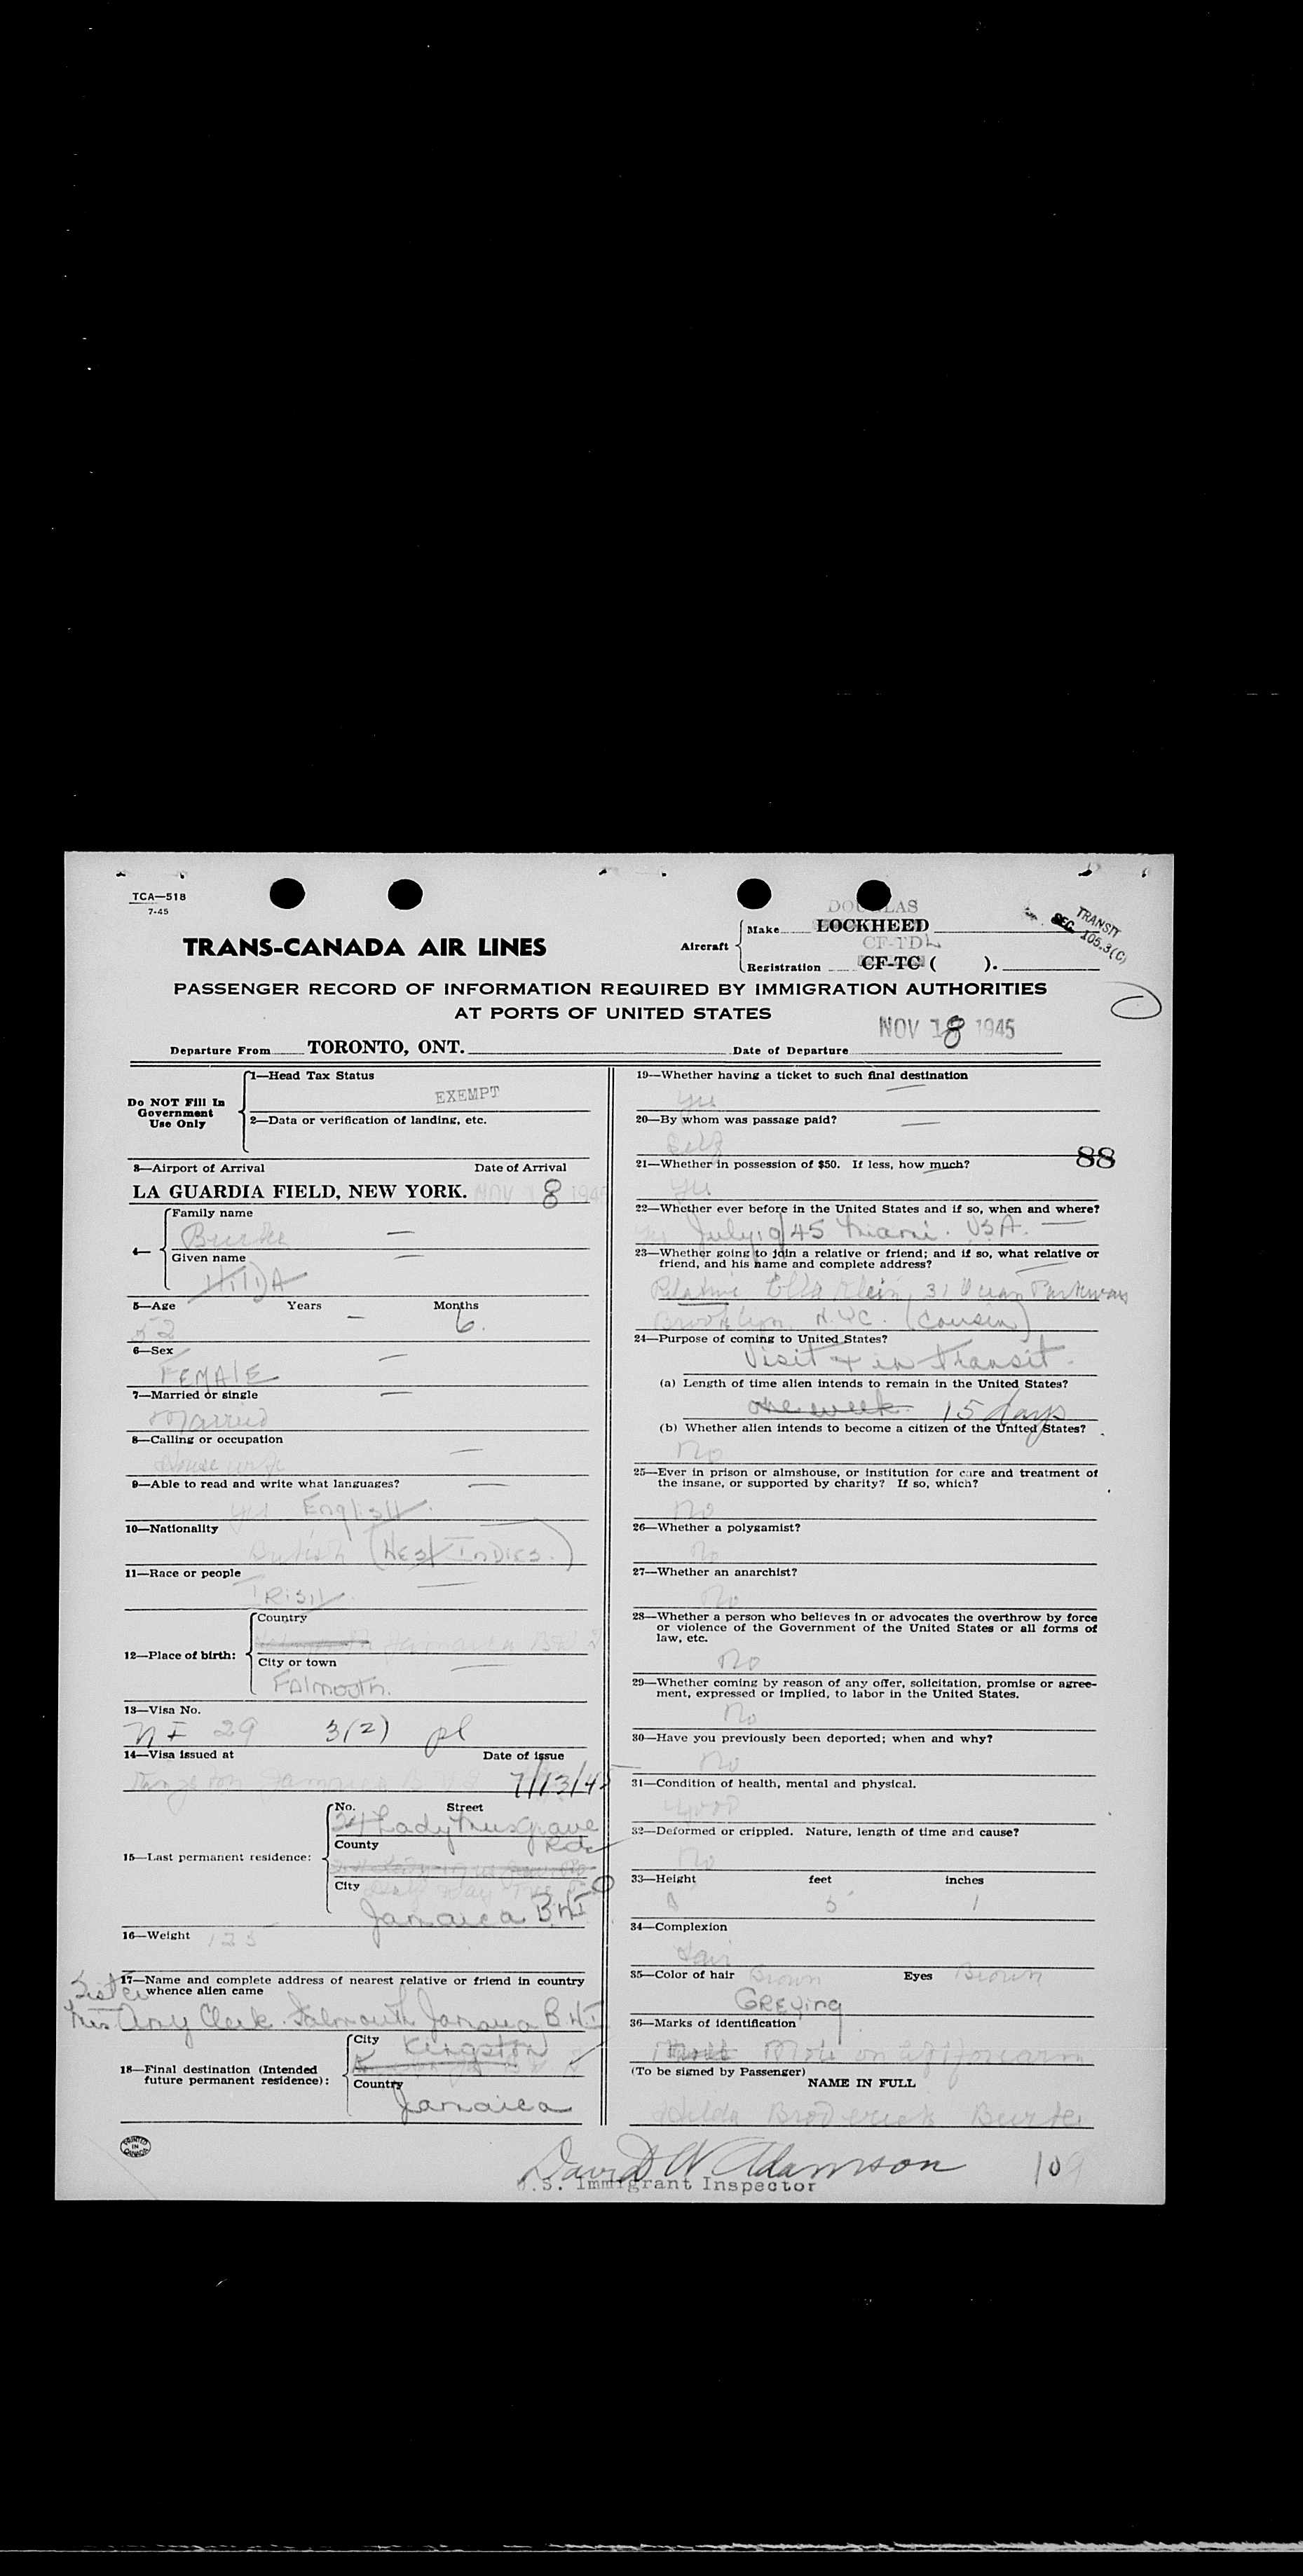 TCA—518
7-45
TRANS-CANADA AIR LINES
DOUGLAS
Aircraft
Make LOCKHEED
CF-TDL
Registration CF-TC ( ).
TRANSIT
SEC. 105.3(C)
PASSENGER RECORD OF INFORMATION REQUIRED BY IMMIGRATION AUTHORITIES
AT PORTS OF UNITED STATES
NOV 18 1945
Departure From TORONTO, ONT. Date of Departure
Do NOT Fill In
Government
Use Only
1—Head Tax Status
EXEMPT
2—Data or verification of landing, etc.
3—Airport of Arrival Date of Arrival
LA GUARDIA FIELD, NEW YORK. NOV 18 1945
4—
Family name
Burke
Given name
HilDA
5—Age Years Months
52 6.
6—Sex
FEMAlE
7—Married or single
Married
8—Calling or occupation
Housewife
9—Able to read and write what languages?
yes English
10—Nationality
British (West Indies.)
11—Race or people
IRish
12—Place of birth:
Country
Jamaica B.W.I
City or town
Falmouth.
13—Visa No.
NI 29 3(2) pl
14—Visa issued at Date of issue
Kingston Jamaica 7/13/45
15—Last permanent residence:
No. Street
24 Lady Musgrave
Rd
County
City
Jamaica B.W.I
16—Weight 125
17—Name and complete address of nearest relative or friend in country
whence alien came
Sister
Mrs Amy Clerk. Falmouth Jamaica B.W.I
18—Final destination (Intended
future permanent residence):
City
Kingston
Country
Jamaica
PRINTED
IN
CANADA
19—Whether having a ticket to such final destination
yes
20—By whom was passage paid?
Self
88
21—Whether in possession of $50. If less, how much?
yes
22—Whether ever before in the United States and if so, when and where?
July 1945 Miami. USA.
23—Whether going to join a relative or friend; and if so, what relative or
friend, and his name and complete address?
Relative Ella Klein, 31 Ocean Parkway
Brooklyn. N.Y.C. (Cousin)
24—Purpose of coming to United States?
Visit & in Transit.
(a) Length of time alien intends to remain in the United States?
one week 15 days
(b) Whether alien intends to become a citizen of the United States?
No
25—Ever in prison or almshouse, or institution for care and treatment of
the insane, or supported by charity? If so, which?
No
26—Whether a polygamist?
No
27—Whether an anarchist?
No
28—Whether a person who believes in or advocates the overthrow by force
or violence of the Government of the United States or all forms of
law, etc.
No
29—Whether coming by reason of any offer, solicitation, promise or agree-
ment, expressed or implied, to labor in the United States.
No
30—Have you previously been deported; when and why?
No
31—Condition of health, mental and physical.
Good
32—Deformed or crippled. Nature, length of time and cause?
No
33—Height feet inches
5 1
34—Complexion
Fair
35—Color of hair Brown Eyes Brown
GREying
36—Marks of identification
Mole on left forearm
(To be signed by Passenger)
NAME IN FULL
Hilda Broderick Burke
David W Adamson
U.S. Immigrant Inspector
109